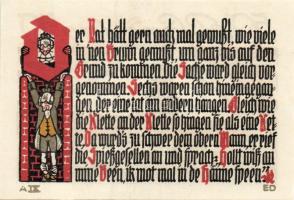 Der Rat hätt gern auch mal gewußt, wie viele
in den Brunn gemußt, um ganz bis auf den
Grund zu kommen. Die Sache ward gleich vor-
genommen. Sechs waren schon hineingegan-
gen, der eine tat am andern hangen. Gleich wie
Klette an der Klette so hingen sie als eine Ket-
te. Da wurd's zu schwer dem öbern Mann, er rief
die Spießgesellen an und sprach: Hollt wiß an
mine Been, ik mot mal in de Hänne speen
A IX
ED